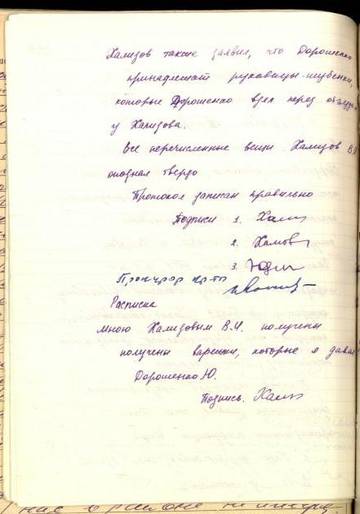 Хализов также заявил, что Дорошенко
принадлежат рукавицы-шубенки,
которые Дорошенко взял перед отъездом
у Хализова.
Все перечисленные вещи Хализов В.И
опознал твердо
Протокол записан правильно
Подписи 1. Хали
2.
3. Юди
Прокурор кр-та
Расписка
Мною Хализовым В.И. получены
получены варежки, которые я давал
Дорошенко Ю.
Подпись. Хали